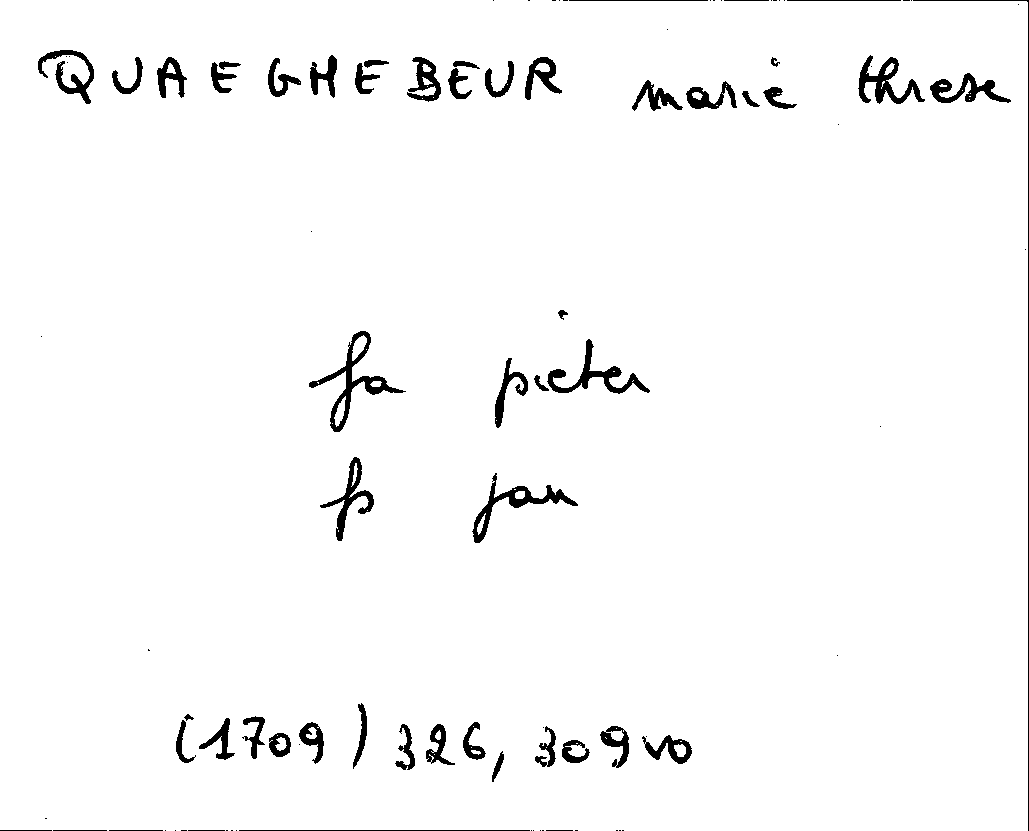 QUAEGHEBEUR marie threse
fa pieter
fs jan
(1709) 326, 309vo